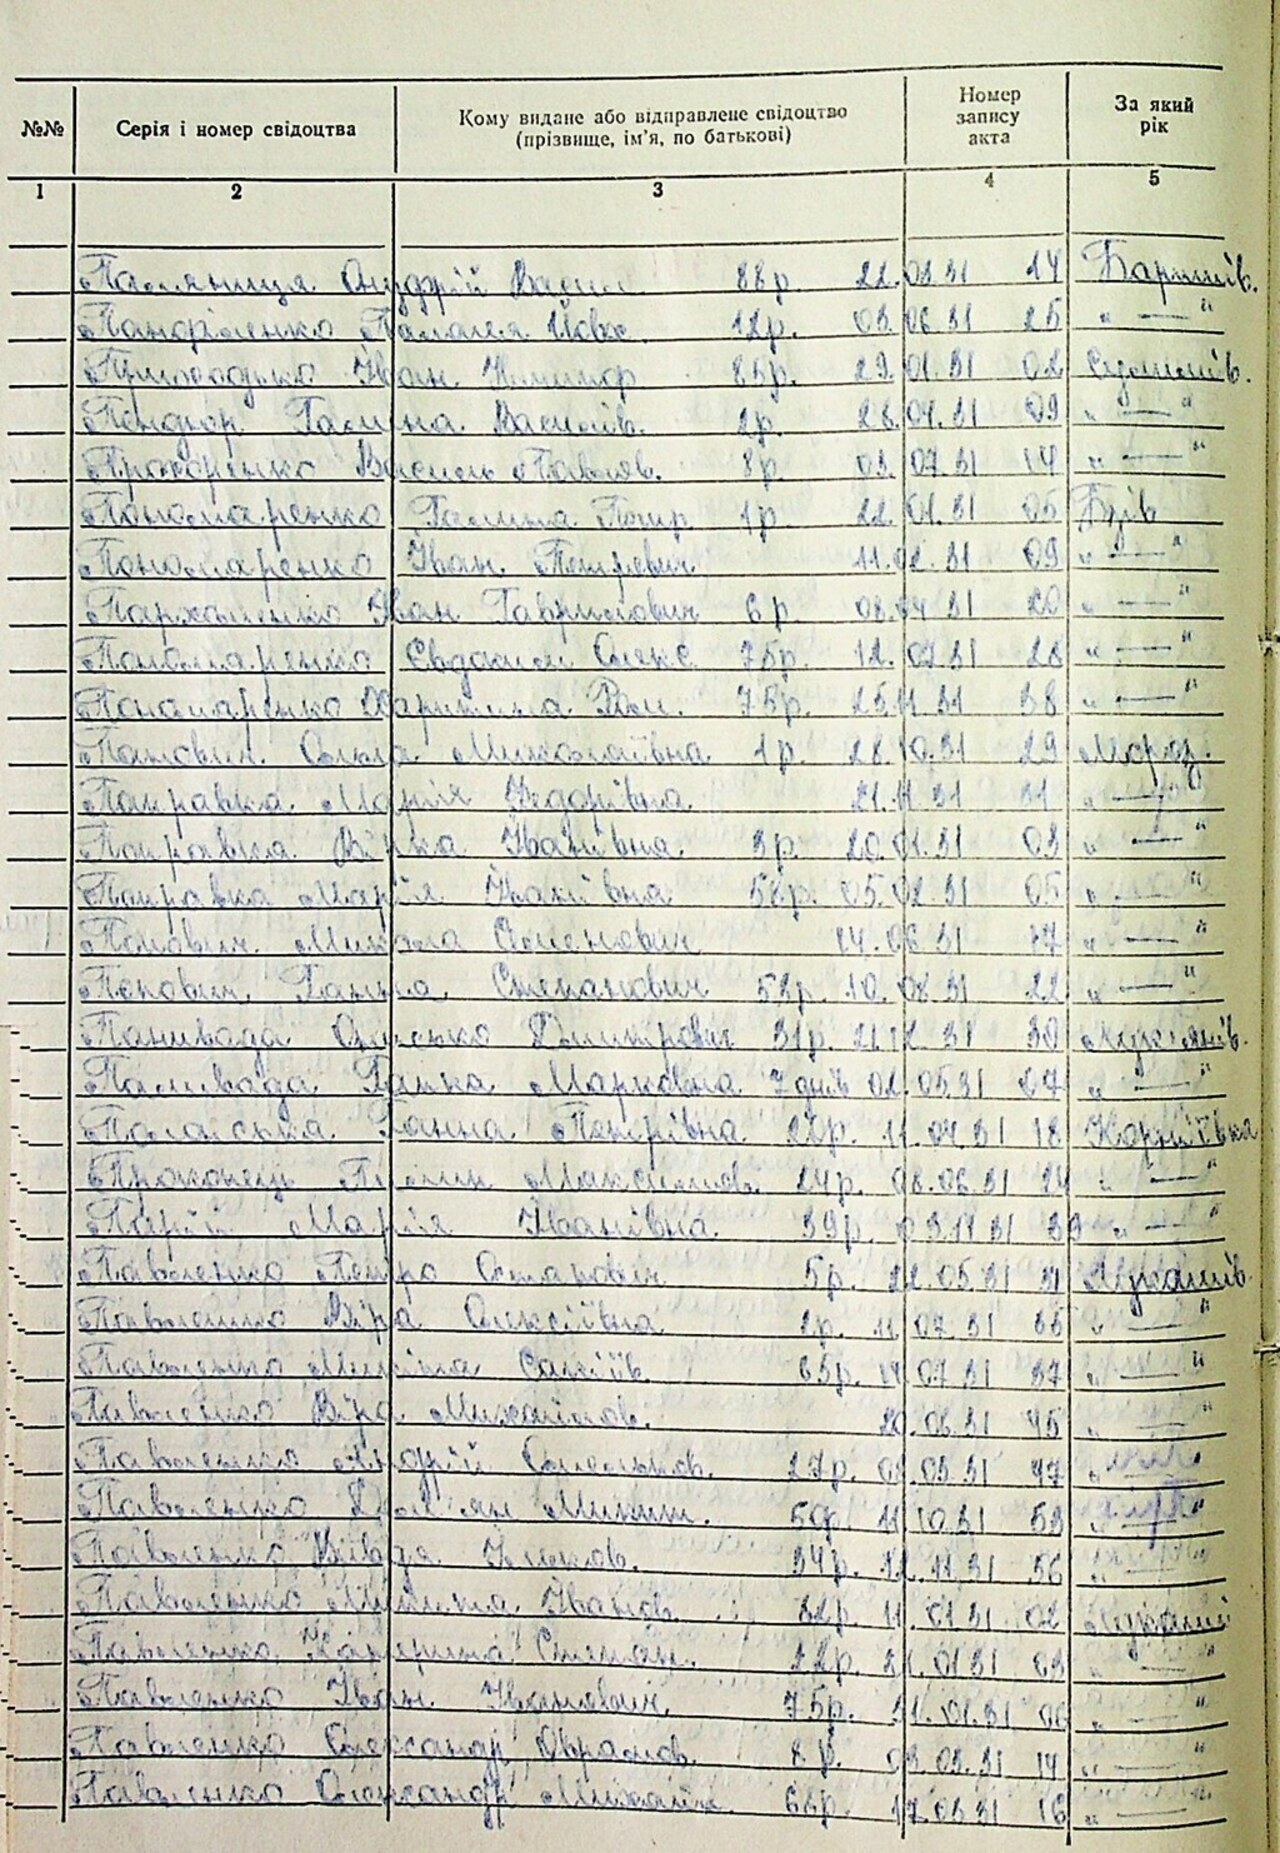 №№ Серія і номер свідоцтва Кому видане або відправлене свідоцтво (прізвище, ім'я, по батькові) Номер запису акта За який рік
1 2 3 4 5
Паляниця Онуфрій Васил. 88р. 22.03.31 14 Баришів.
Панфіленко Палагея 12р. 03.06.31 25 „ — "
Іван 85р. 29.01.31 02
Галина Василів. 2р. 28.04.31 09 „ — "
Прохоренко Василь Павлов. 8р. 03.07.31 14 „ — "
Пономаренко Галина Петр. 1р 22.01.31 05 Бзів
Пономаренко Іван Петрович 11.02.31 09 „ — "
Пархоменко Іван Гаврилович 6р. 08.04.31 20 „ — "
Пономаренко Євдоким Олекс. 75р. 12.07.31 28 „ — "
Пономаренко Харитина Ром. 75р. 25.11.31 38 „ — "
Попович Ольга Миколаївна 1р. 28.10.31 29 Мороз.
Поправка Марія Федорівна 21.11.31 31 „ — "
Поправка Вірка Іванівна. 3р. 20.01.31 03 „ — "
Поправка Марія Іванівна 58р. 05.02.31 05 „ — "
Попович Микола Семенович 14.06.31 17 „ — "
Попович Ганна Степанович 52р. 10.08.31 22 „ — "
Паливода Дмитрович 31р. 21.12.31 30 Лук'янів.
Паливода Ганка Марковна 7 днів 02.05.31 07 „ — "
Ганна Петрівна 20р. 11.04.31 18 Корніївка
Прокопець Максимов. 24р. 08.06.31 24 „ — "
Марія Іванівна. 39р. 03.11.31 39 „ — "
Павленко Петро Остапович 5р. 22.05.31 31 Лукашів.
Павленко Віра Олексіївна 2р. 11.07.31 35 „ — "
Павленко Микита 65р. 14.07.31 37 „ — "
Павленко Віра Михайлов. 20.08.31 45 „ — "
Павленко Андрій Омельков. 27р. 02.09.31 47 „ — "
Павленко Дем'ян Микит. 50р. 11.10.31 53 „ — "
Павленко 34р. 12.11.31 56 „ — "
Павленко Микита Іванов. 82р. 11.01.31 02 Лукаші
Павленко Катерина Степан. 22р. 21.01.31 03 „ — "
Павленко Іван Іванович. 75р. 31.01.31 06 „ — "
Павленко Олександр Аврамов. 8р. 03.03.31 14 „ — "
Павленко Олександр Михайл. 68р. 17.03.31 16 „ — "